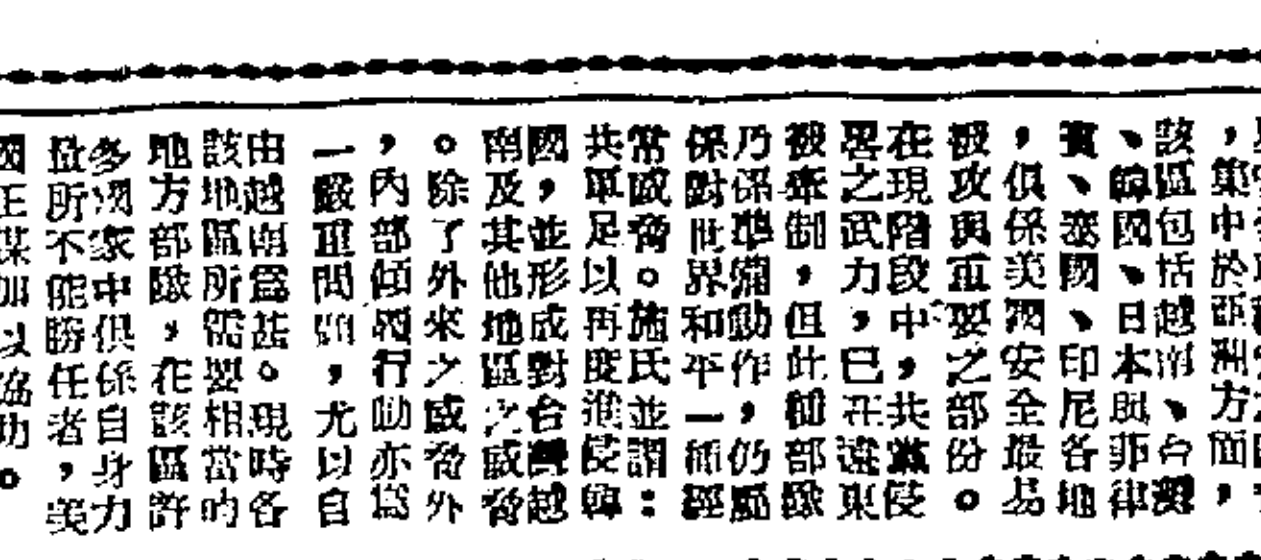 ，集中於亞洲方面，
該區包括越南、台灣
、韓國、日本與菲律
賓、泰國、印尼各地
，俱係美國安全最易
被攻與重要之部份。
在現階段中，共黨侵
畧之武力，已在遠東
被牽制，但此種部隊
乃係準備動作，仍屬
保對世界和平一種經
常威脅。施氏並謂：
共軍足以再度進侵韓
國，並形成對台灣越
南及其他地區之威脅
。除了外來之威脅外
，內部傾覆行動亦為
一嚴重問題，尤以自
由越南為甚。現時各
該地區所需要相當的
地方部隊，在該區許
多國家中俱係自身力
量所不能勝任者，美
國正謀加以協助。